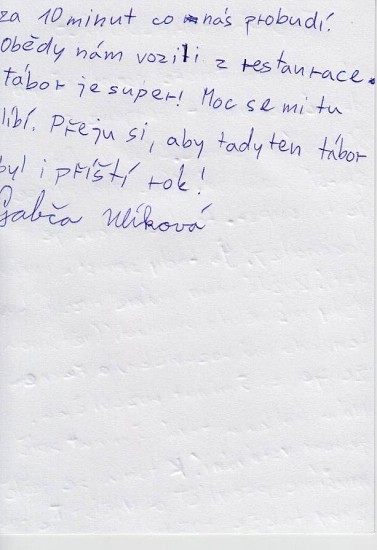 za 10 minut co nás probudí.
Obědy nám vozili z restaurace.
tábor je super! Moc se mi tu
líbí. Přeju si, aby tady ten tábor
byl i příští rok!
Gabča Ulíková